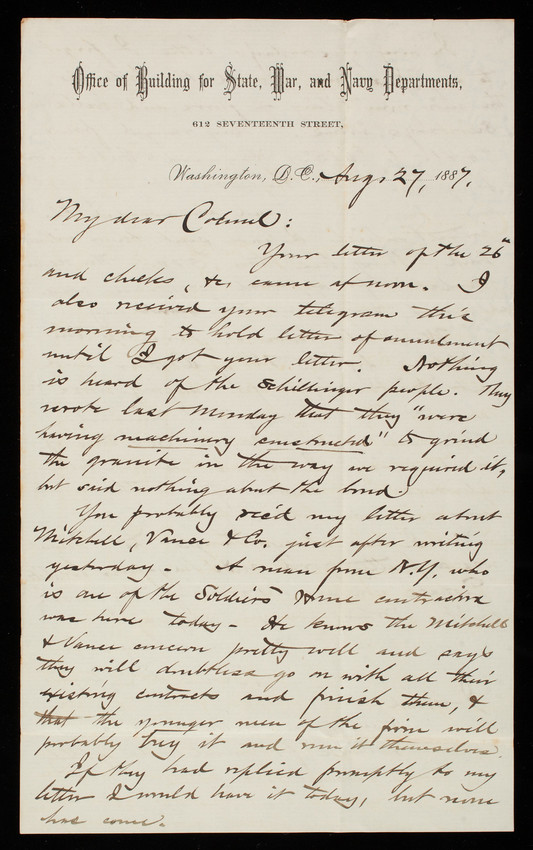 Office of Building for State, War, and Navy Departments,
612 SEVENTEENTH STREET,
Washington, D.C., Aug. 27, 1887.
My dear Colonel:
Your letter of the 26"
and checks, &c, came at noon. I
also received your telegram this
morning to hold letter of amendment
until I got your letter. Nothing
is heard of the Schillinger people. They
wrote last Monday that they "were
having machinery constructed" to grind
the granite in the way we required it,
but said nothing about the bond.
You probably rec'd my letter about
Mitchell, Vance & Co. just after writing
yesterday. A man from N.Y. who
is one of the Soldiers Home contractors
was here today - He knows the Mitchell
& Vance concern pretty well and says
they will doubtless go on with all their
existing contracts and finish them, &
that the younger men of the firm will
probably buy it and run it themselves.
If they had replied promptly to my
letter I would have it today, but none
has come.